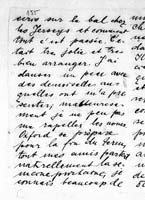 135
sur le bal chez
les Jerseys et comme
tout s'est passé. C'
était très jolie et très
bien arranger. J'ai
danser un peu avec
des demoiselles aux
quelles on m'a pré
senter, malheureuse
ment je ne peux pas
me rappeler les noms.
Oxford se prépare
pour la fin du term,
tout mes amis parlent
naturellement la se
maine prochaine, je
connais beaucoup de